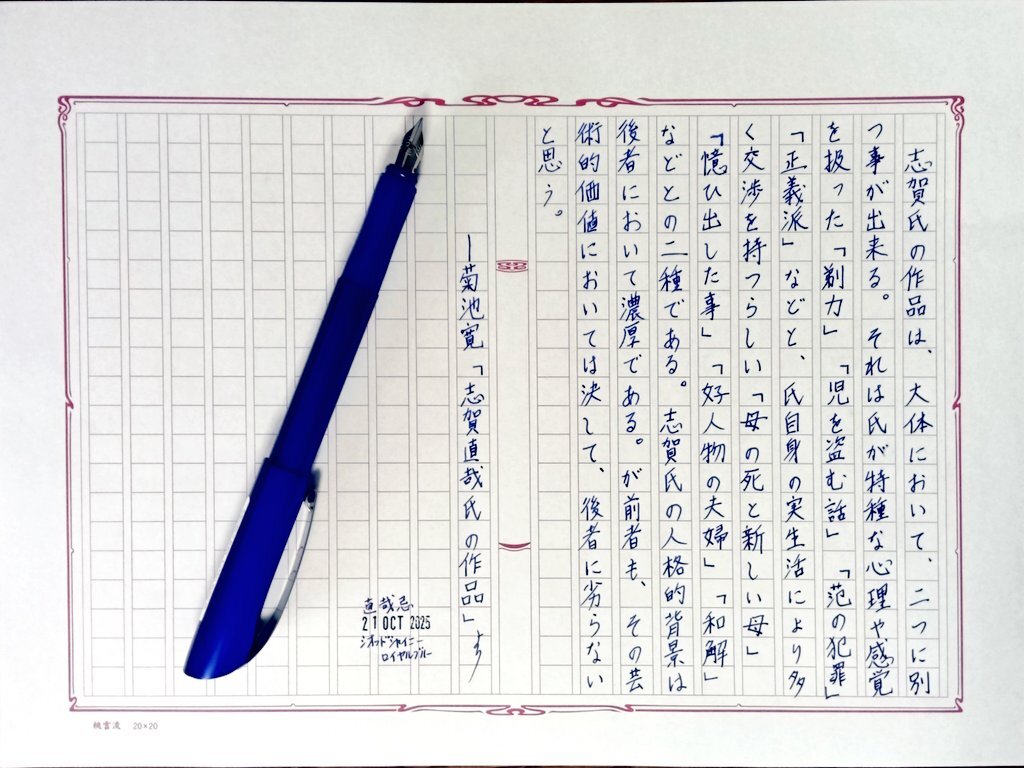 志賀氏の作品は、大体において、二つに別
つ事が出来る。それは氏が特種な心理や感覚
を扱った「剃刀」「児を盗む話」「范の犯罪」
「正義派」などと、氏自身の実生活により多
く交渉を持つらしい「母の死と新しい母」
「憶ひ出した事」「好人物の夫婦」「和解」
などとの二種である。志賀氏の人格的背景は
後者において濃厚である。が前者も、その芸
術的価値においては決して、後者に劣らない
と思う。
―菊池寛「志賀直哉氏の作品」より
直哉忌
21 OCT 2025
ジオッドシャイニー
ロイヤルブルー
桃雲流 20×20